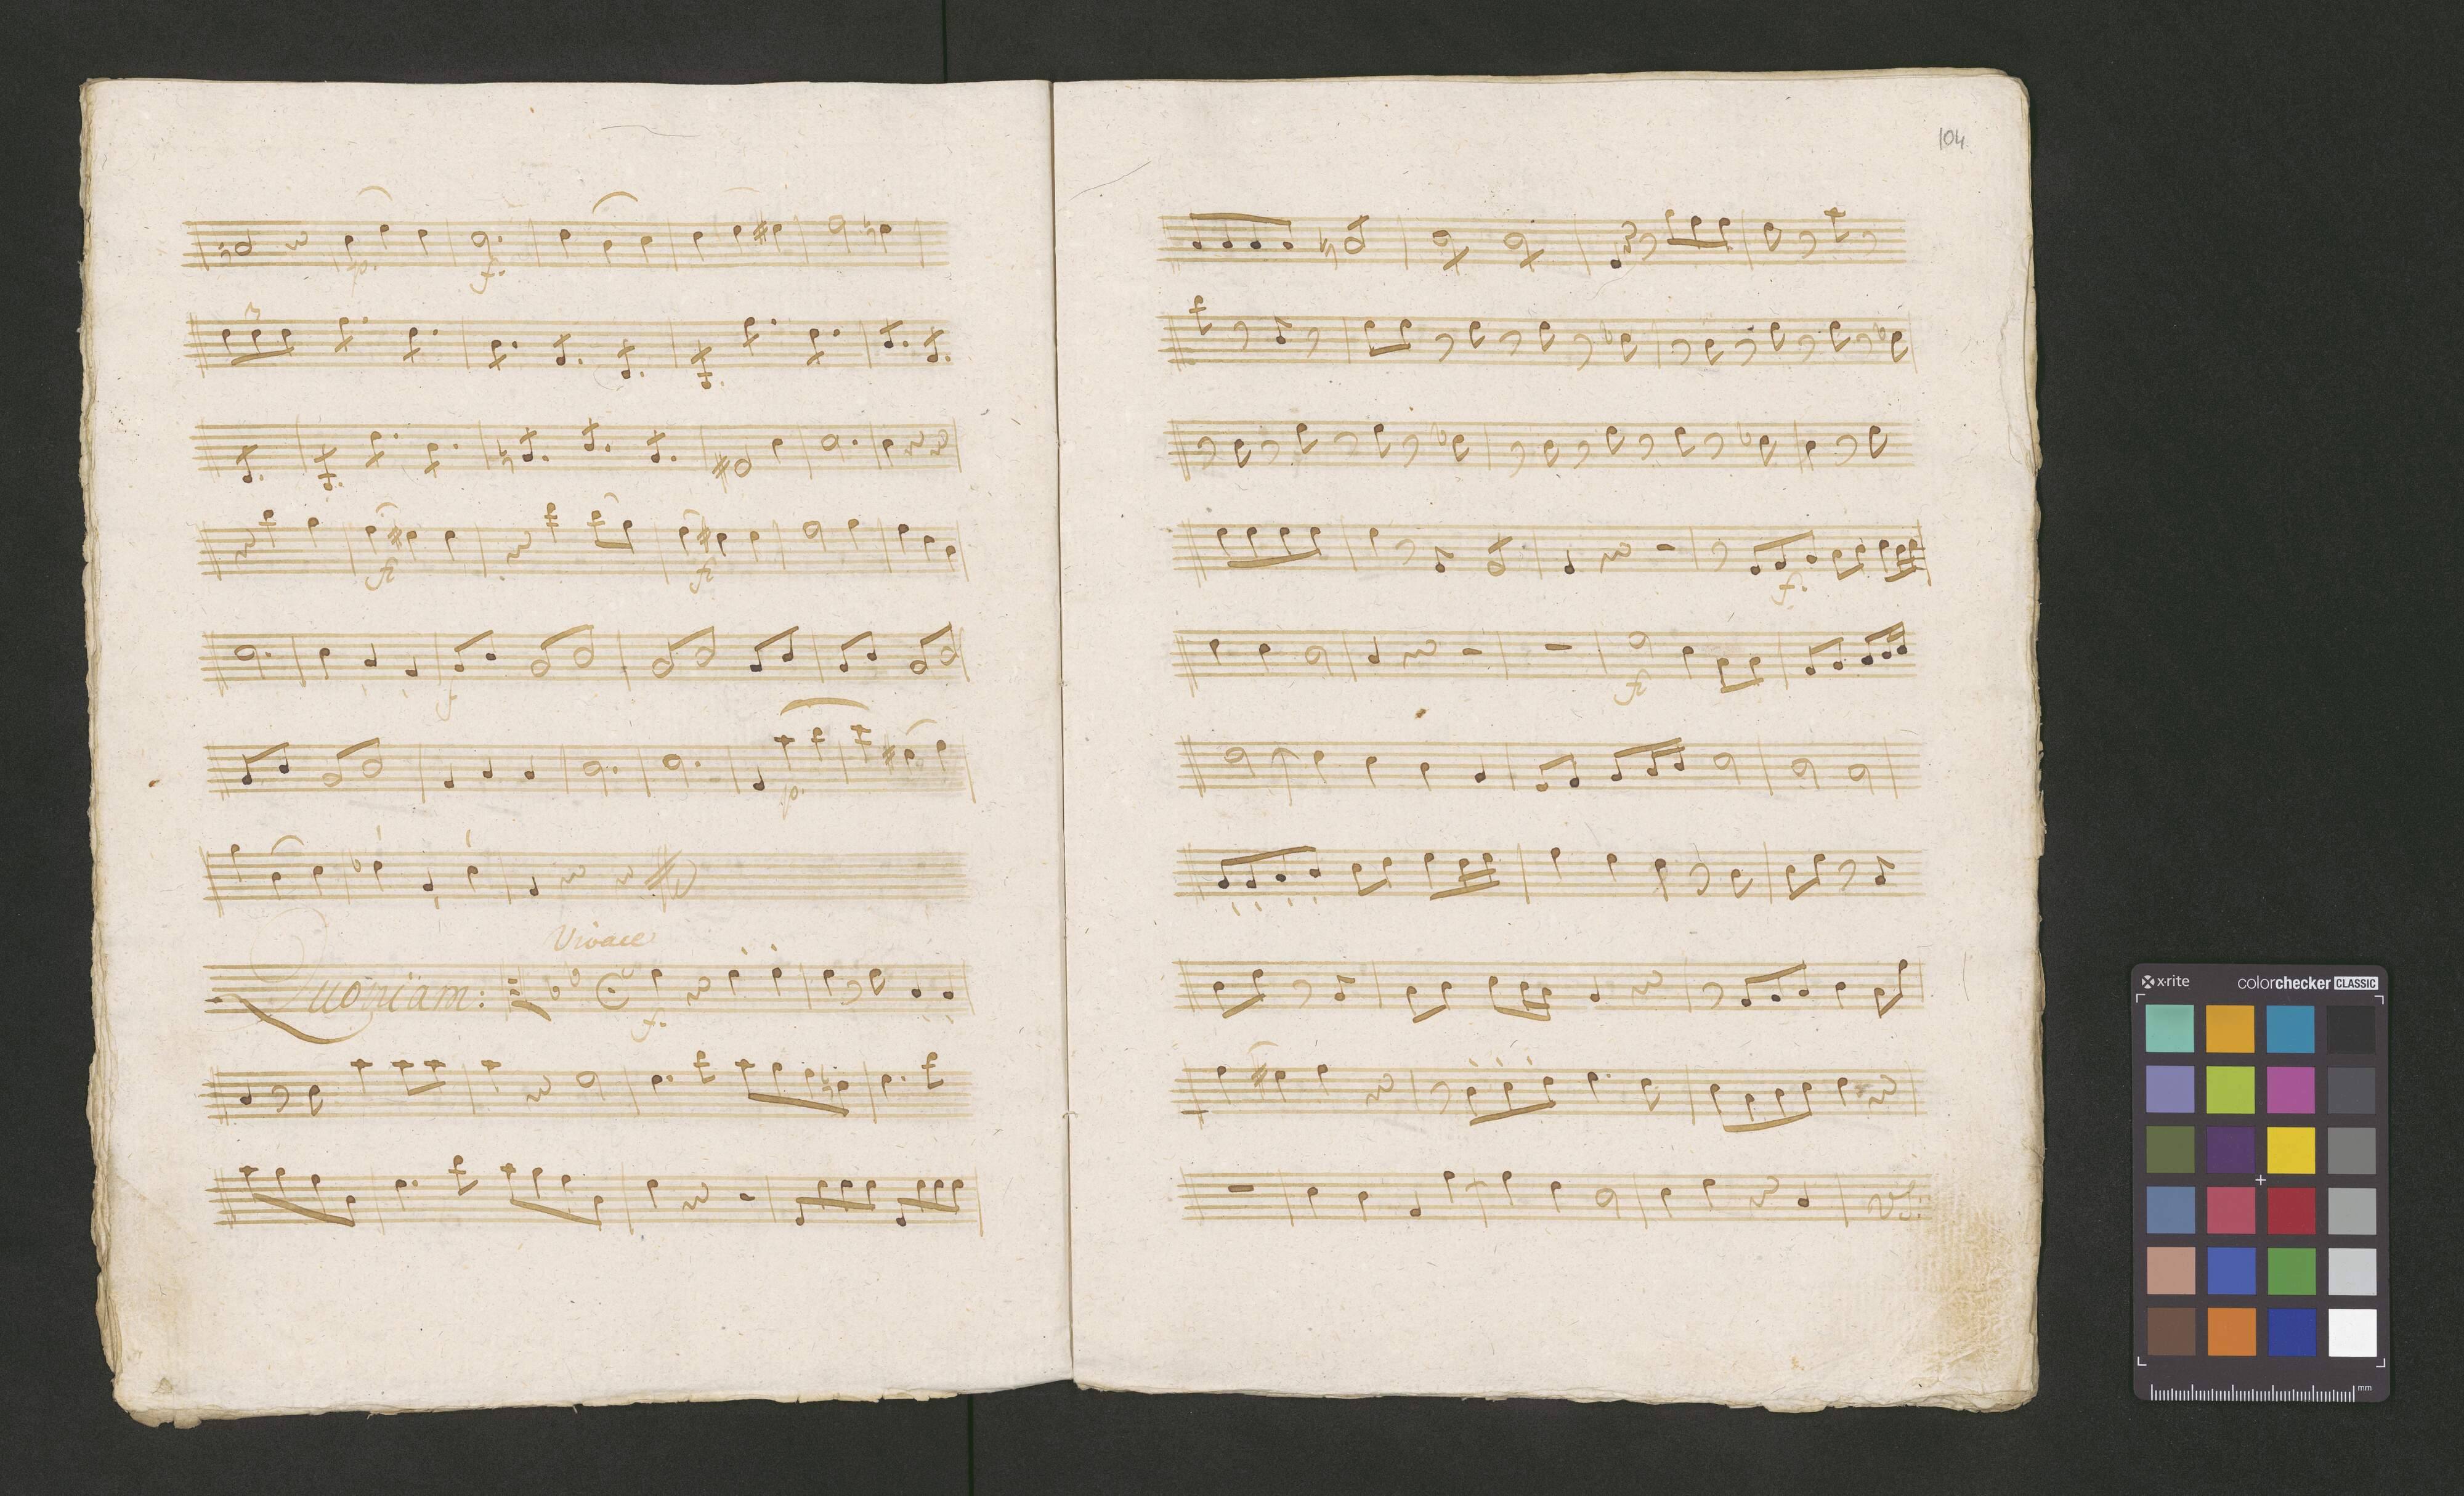 p.
f.
3
fz
fz
f
p.
Vivace
Quoniam:
f.
104
f.
fz
x-rite
colorchecker CLASSIC
mm